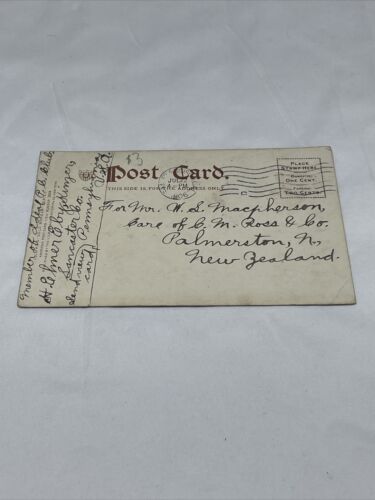 $3
Post Card.
THIS SIDE IS FOR THE ADDRESS ONLY
PLACE
STAMP HERE
DOMESTIC
ONE CENT.
FOREIGN
TWO CENTS
1906
For Mr. W. S. Macpherson,
Care of C. M. Ross & Co.
Palmerston, N,
New Zealand.
Member of P. C. Club
H. Elmer
Lancaster Co.
Pennsylvania
U.S.A.
Send view
card